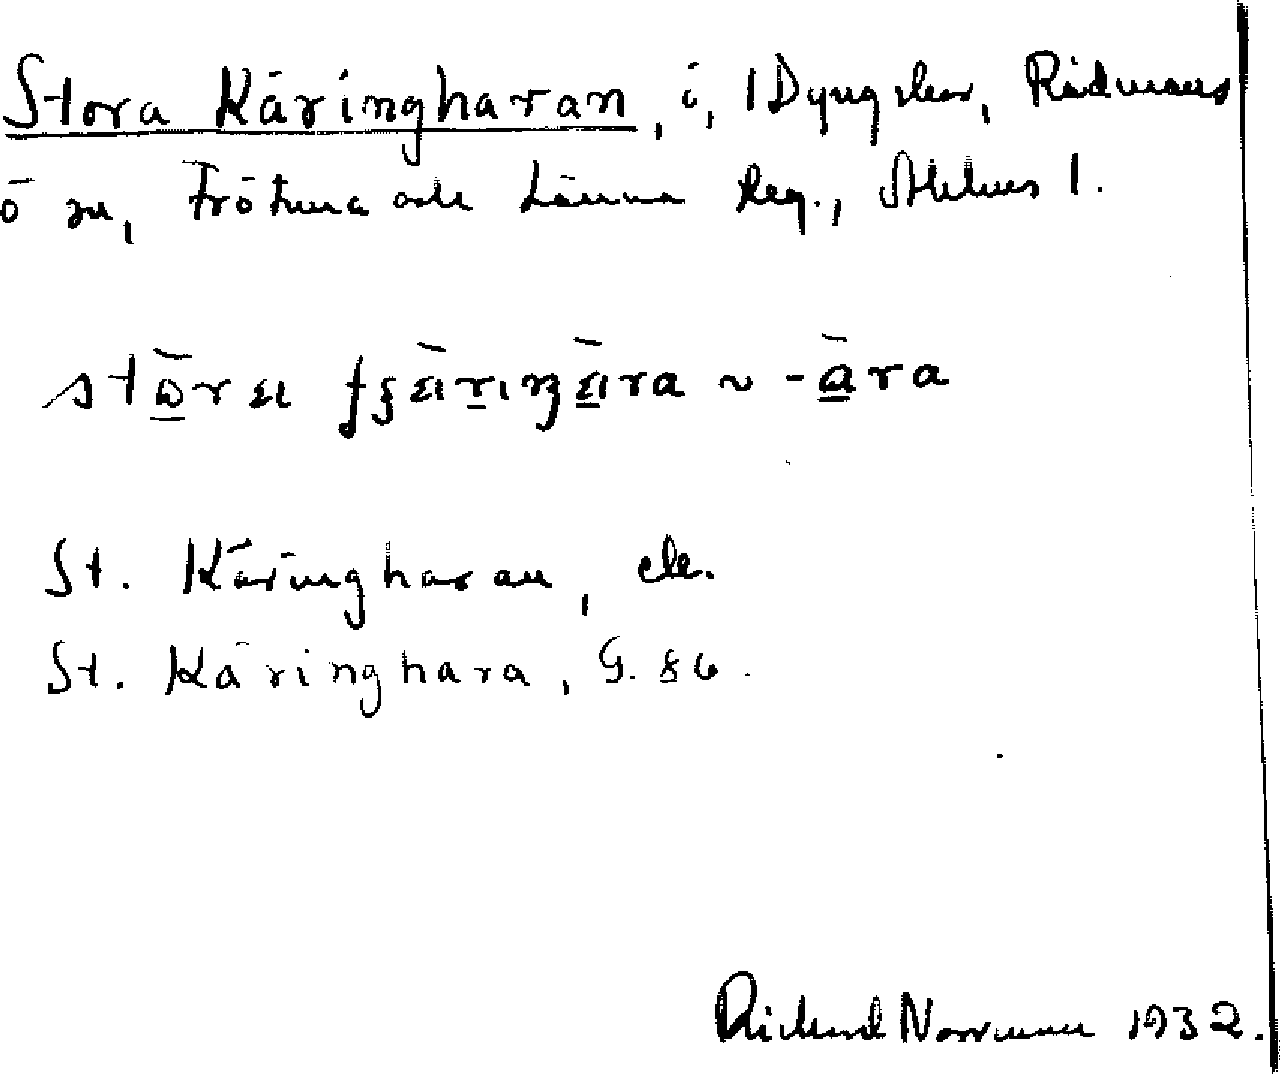 Stora Käringharan, i, 1 Dyngskär, Rådmans
ö sn, Frötuna och Länna skg., Sthlms l.
St. Käringharan, ek.
St. Käringhara, G. 86.
Rickard Norrman 1932.